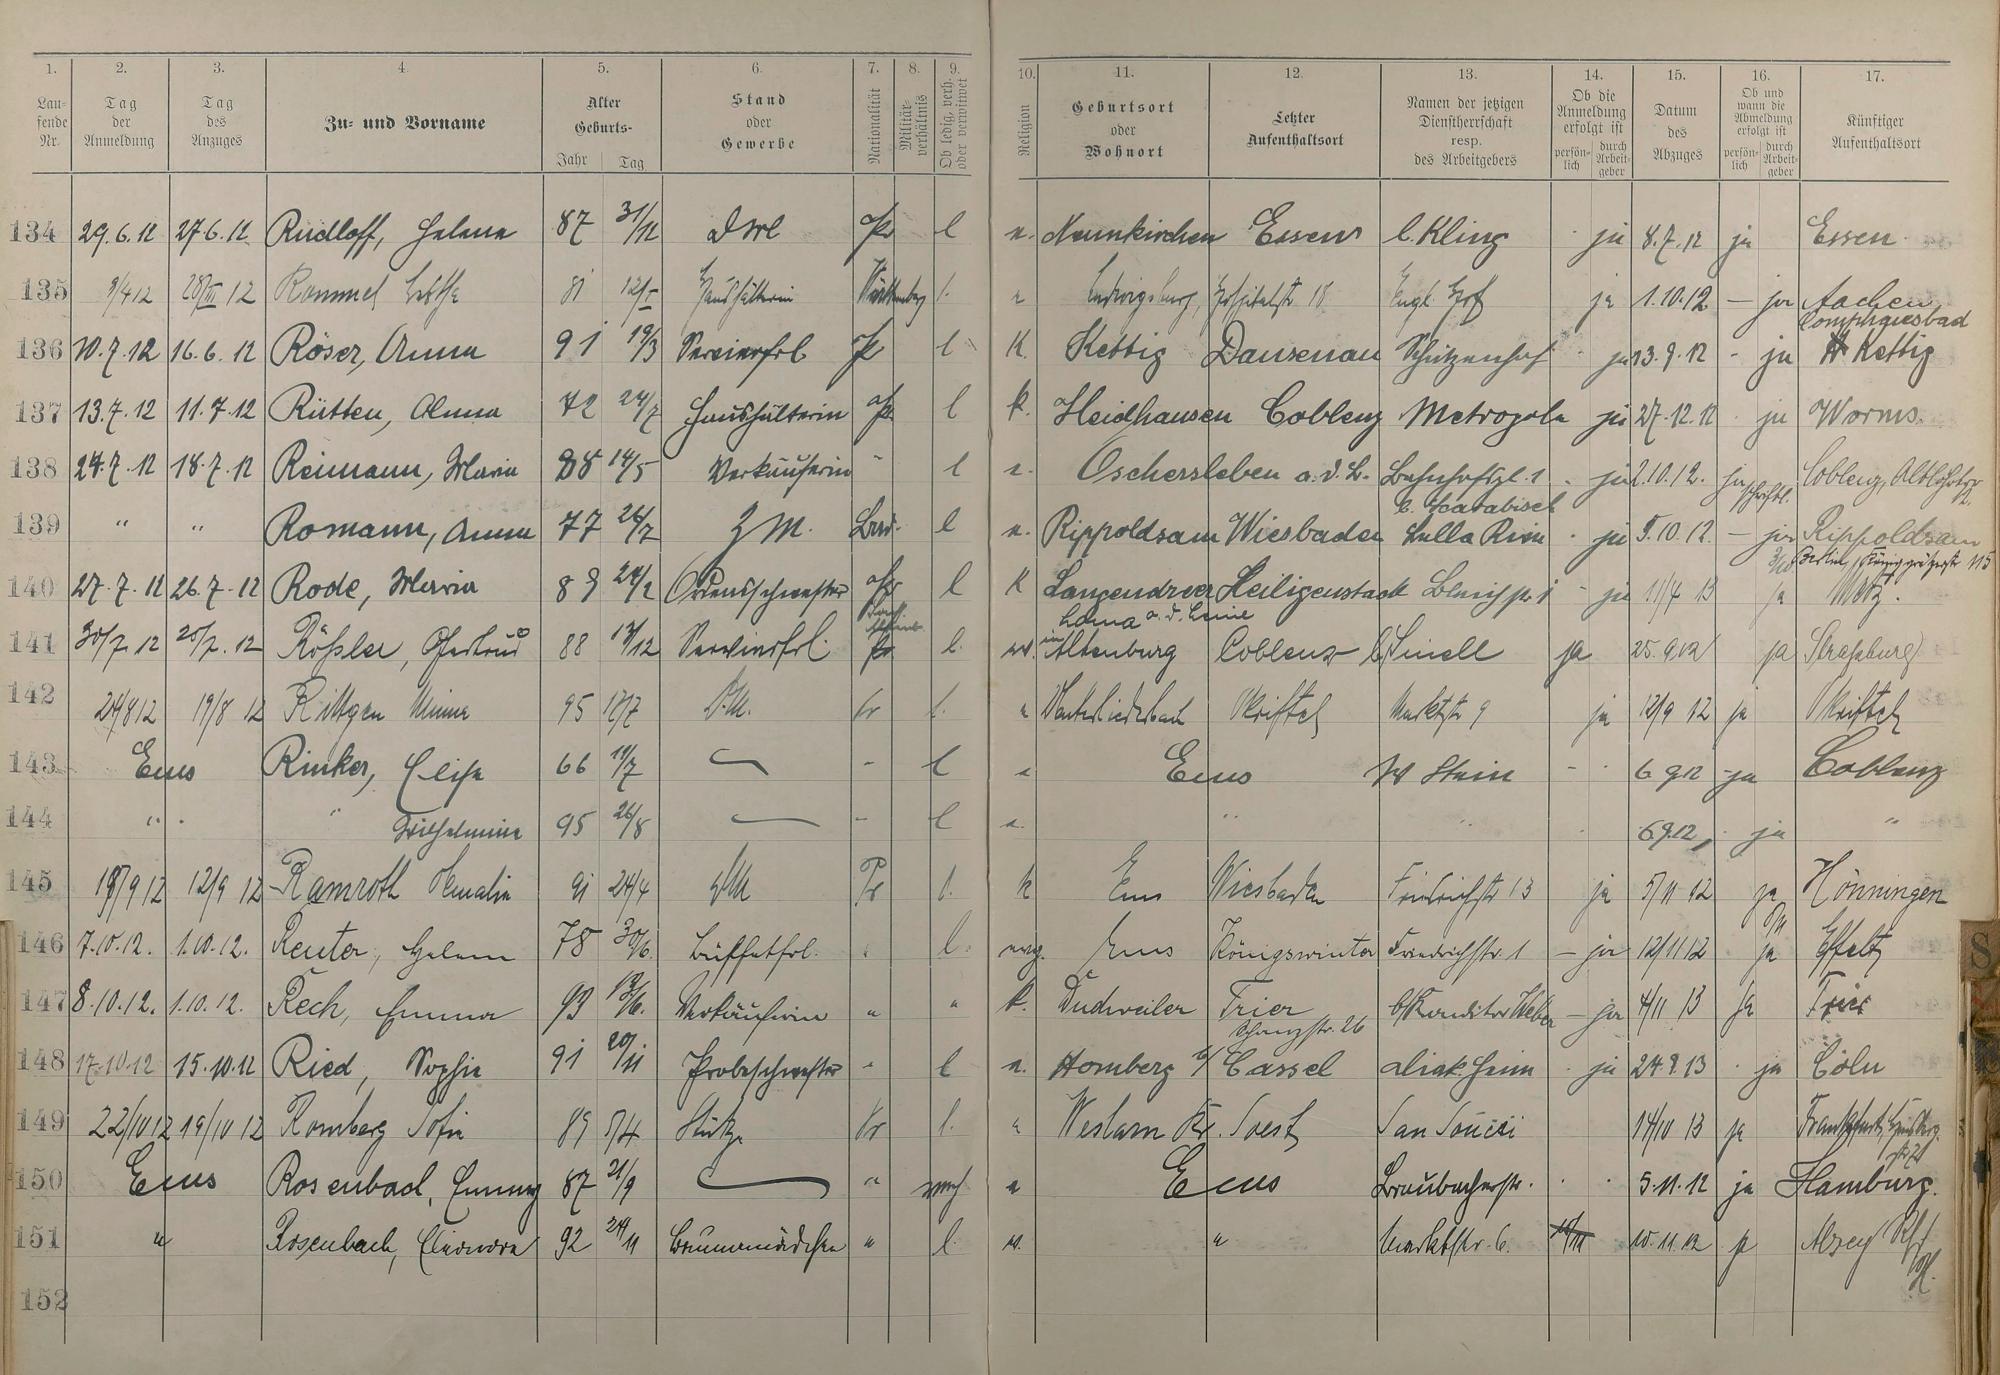 1. 2. 3. 4. 5. 6. 7. 8. 9. 10. 11. 12. 13. 14. 15. 16. 17.
Lau-
fende
Nr.
Tag
der
Anmeldung
Tag
des
Anzuges
Zu- und Vorname
Alter
Geburts-
Jahr Tag
Stand
oder
Gewerbe
Nationalität
Militär-
verhältnis
Ob ledig, verh.
oder verwitwet
Religion
Geburtsort
oder
Wohnort
Letzter
Aufenthaltsort
Namen der jetzigen
Dienstherrschaft
resp.
des Arbeitgebers
Ob die
Anmeldung
erfolgt ist
persön-
lich
durch
Arbeit-
geber
Datum
des
Abzuges
Ob und
wann die
Abmeldung
erfolgt ist
persön-
lich
durch
Arbeit-
geber
Künftiger
Aufenthaltsort
134 29.6.12 27.6.12 Rudloff, Helene 87 31/12 Pr l e. Neunkirchen Essen C. Kling ja 8.7.12 ja Essen
135 9/4 12 28/III 12 Rommel 81 12/I Haushälterin Württembg l. e Ludwigsburg, Hospitalstr 18 Engl. Hof ja 1.10.12 — ja Aachen,
Comphausbad
136 10.7.12 16.6.12 Röser, Anna 91 19/3 Servierfrl Pr l K. Kettig Dausenau Schützenhof - ja 13.9.12 - ja Kettig
137 13.7.12 11.7.12 Rütten, Anna 72 24/7 Haushälterin Pr. l k. Heidhausen Coblenz Metropole ja 27.12.12 ja Worms.
138 24.7.12 18.7.12 Reimann, Maria 88 14/5 Verkäuferin " l e. Oschersleben a.d.B. Bahnhofspl. 1 - ja 2.10.12. ja schriftl. Coblenz, Altlöhrtor
b. Harabisch
139 " " Romann, Anna 77 26/7 Z M. Bad. l e. Rippoldsau Wiesbaden Bella Riva - ja 5.10.12. — ja Rippoldsau
Berlin, Königgrätzerstr 115
140 27.7.12 26.7.12 Rode, Maria 89 24/2 Ordensschwester Pr l K Langendreer Heiligenstadt - ja 11/4 13 ja Metz.
Lohma a.d. Leine
141 30/7 12 25/7.12 Rößler, Gertrud 88 13/12 Servierfrl. Pr l. ev. in Altenburg Coblenz ja 25.9.12 ja Straßburg
142 24/8 12 19/8 12 Rittgen Minna 95 17/7 D.M. Pr l. e Kriftel Marktstr 9 ja 12/9 12 ja Kriftel
143 Ems Rinker, Elise 66 19/7 - l e Ems W Stein - 6 9 12 - ja Coblenz
144 " " Wilhelmine 95 26/8 - l e. " " 6.9.12, ja "
145 19/9 12 12/9 12 Ramroth Amalie 91 24/4 Pr l. k Ems Wiesbaden Friedrichstr 13 ja 5/11 12 ja Hönningen
146 7.10.12. 1.10.12. Reuter, Helene 78 30/6. Büffetfrl. " l. evg. Ems Königswinter Friedrichstr. 1 — ja 12/11 12 ja Effeltz
147 8.10.12. 1.10.12. Rech, Emma 93 13/6. Verkäuferin " " k. Dudweiler Trier b/Konditor Weber — ja 4/11 13 ja Trier
Schanzstr. 26
148 17.10.12 15.10.12 Ried, Sophie 91 20/11 Probeschwester " l e. Homberg b/ Cassel Diak. Heim - ja 24.9.13 - ja Cöln
149 22/10 12 19/10 12 Romberg Sofie 89 5/4 Stütze Pr l. e Weslarn Kr. Soest San Soucsi 14/10 13 ja Frankfurt,
150 Ems Rosenbach, Emmy 87 21/9 " e Ems Braubacherstr. - 5.11.12 ja Hamburg.
151 " Rosenbach, Eleonora 92 24/11 Brunnenmädchen " l. ev. " Marktstr. 6. 10.11.12 ja Alzey
152
S